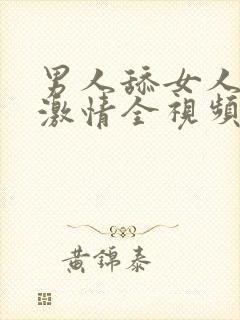 男人舔女人
激情全視頻
黃錦泰